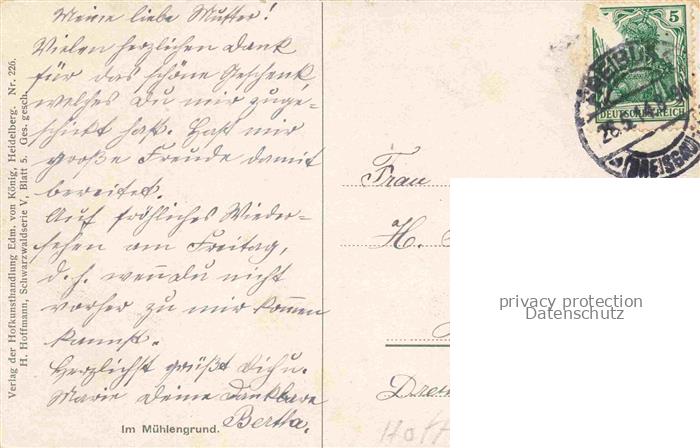 Meine liebe Mutter!
Vielen herzlichen Dank
für das schöne Geschenk
welches Du mir zuge-
schickt hast. Hast mir
große Freude damit
bereitet.
Auf fröhliches Wieder-
sehen am Freitag,
d. h. wenn Du nicht
vorher zu mir kommen
kannst.
Herzlichst grüßt Dich u.
Marie Deine dankbare
Bertha.
Im Mühlengrund.
Verlag der Hofkunsthandlung Edm. von König, Heidelberg. Nr. 226.
H. Hoffmann, Schwarzwaldserie V, Blatt 5. Ges. gesch.
5
DEUTSCHES REICH
(BREISGAU)
Frau
H.
privacy protection
Datenschutz